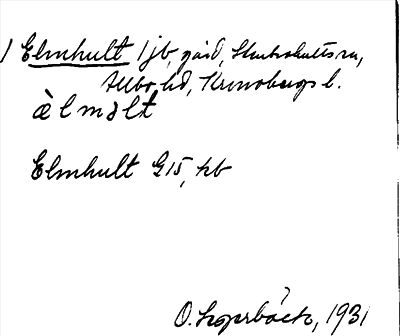 ) Elmhult 1 jb, gård, Stenbrohults sn,
Allbo hd, Kronobergs l.
àlməlt
Elmhult G15, kb
O. 1931